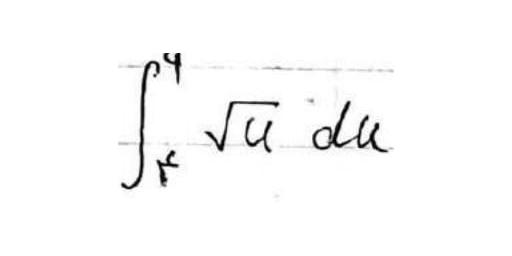 ∫₁⁴ √u du